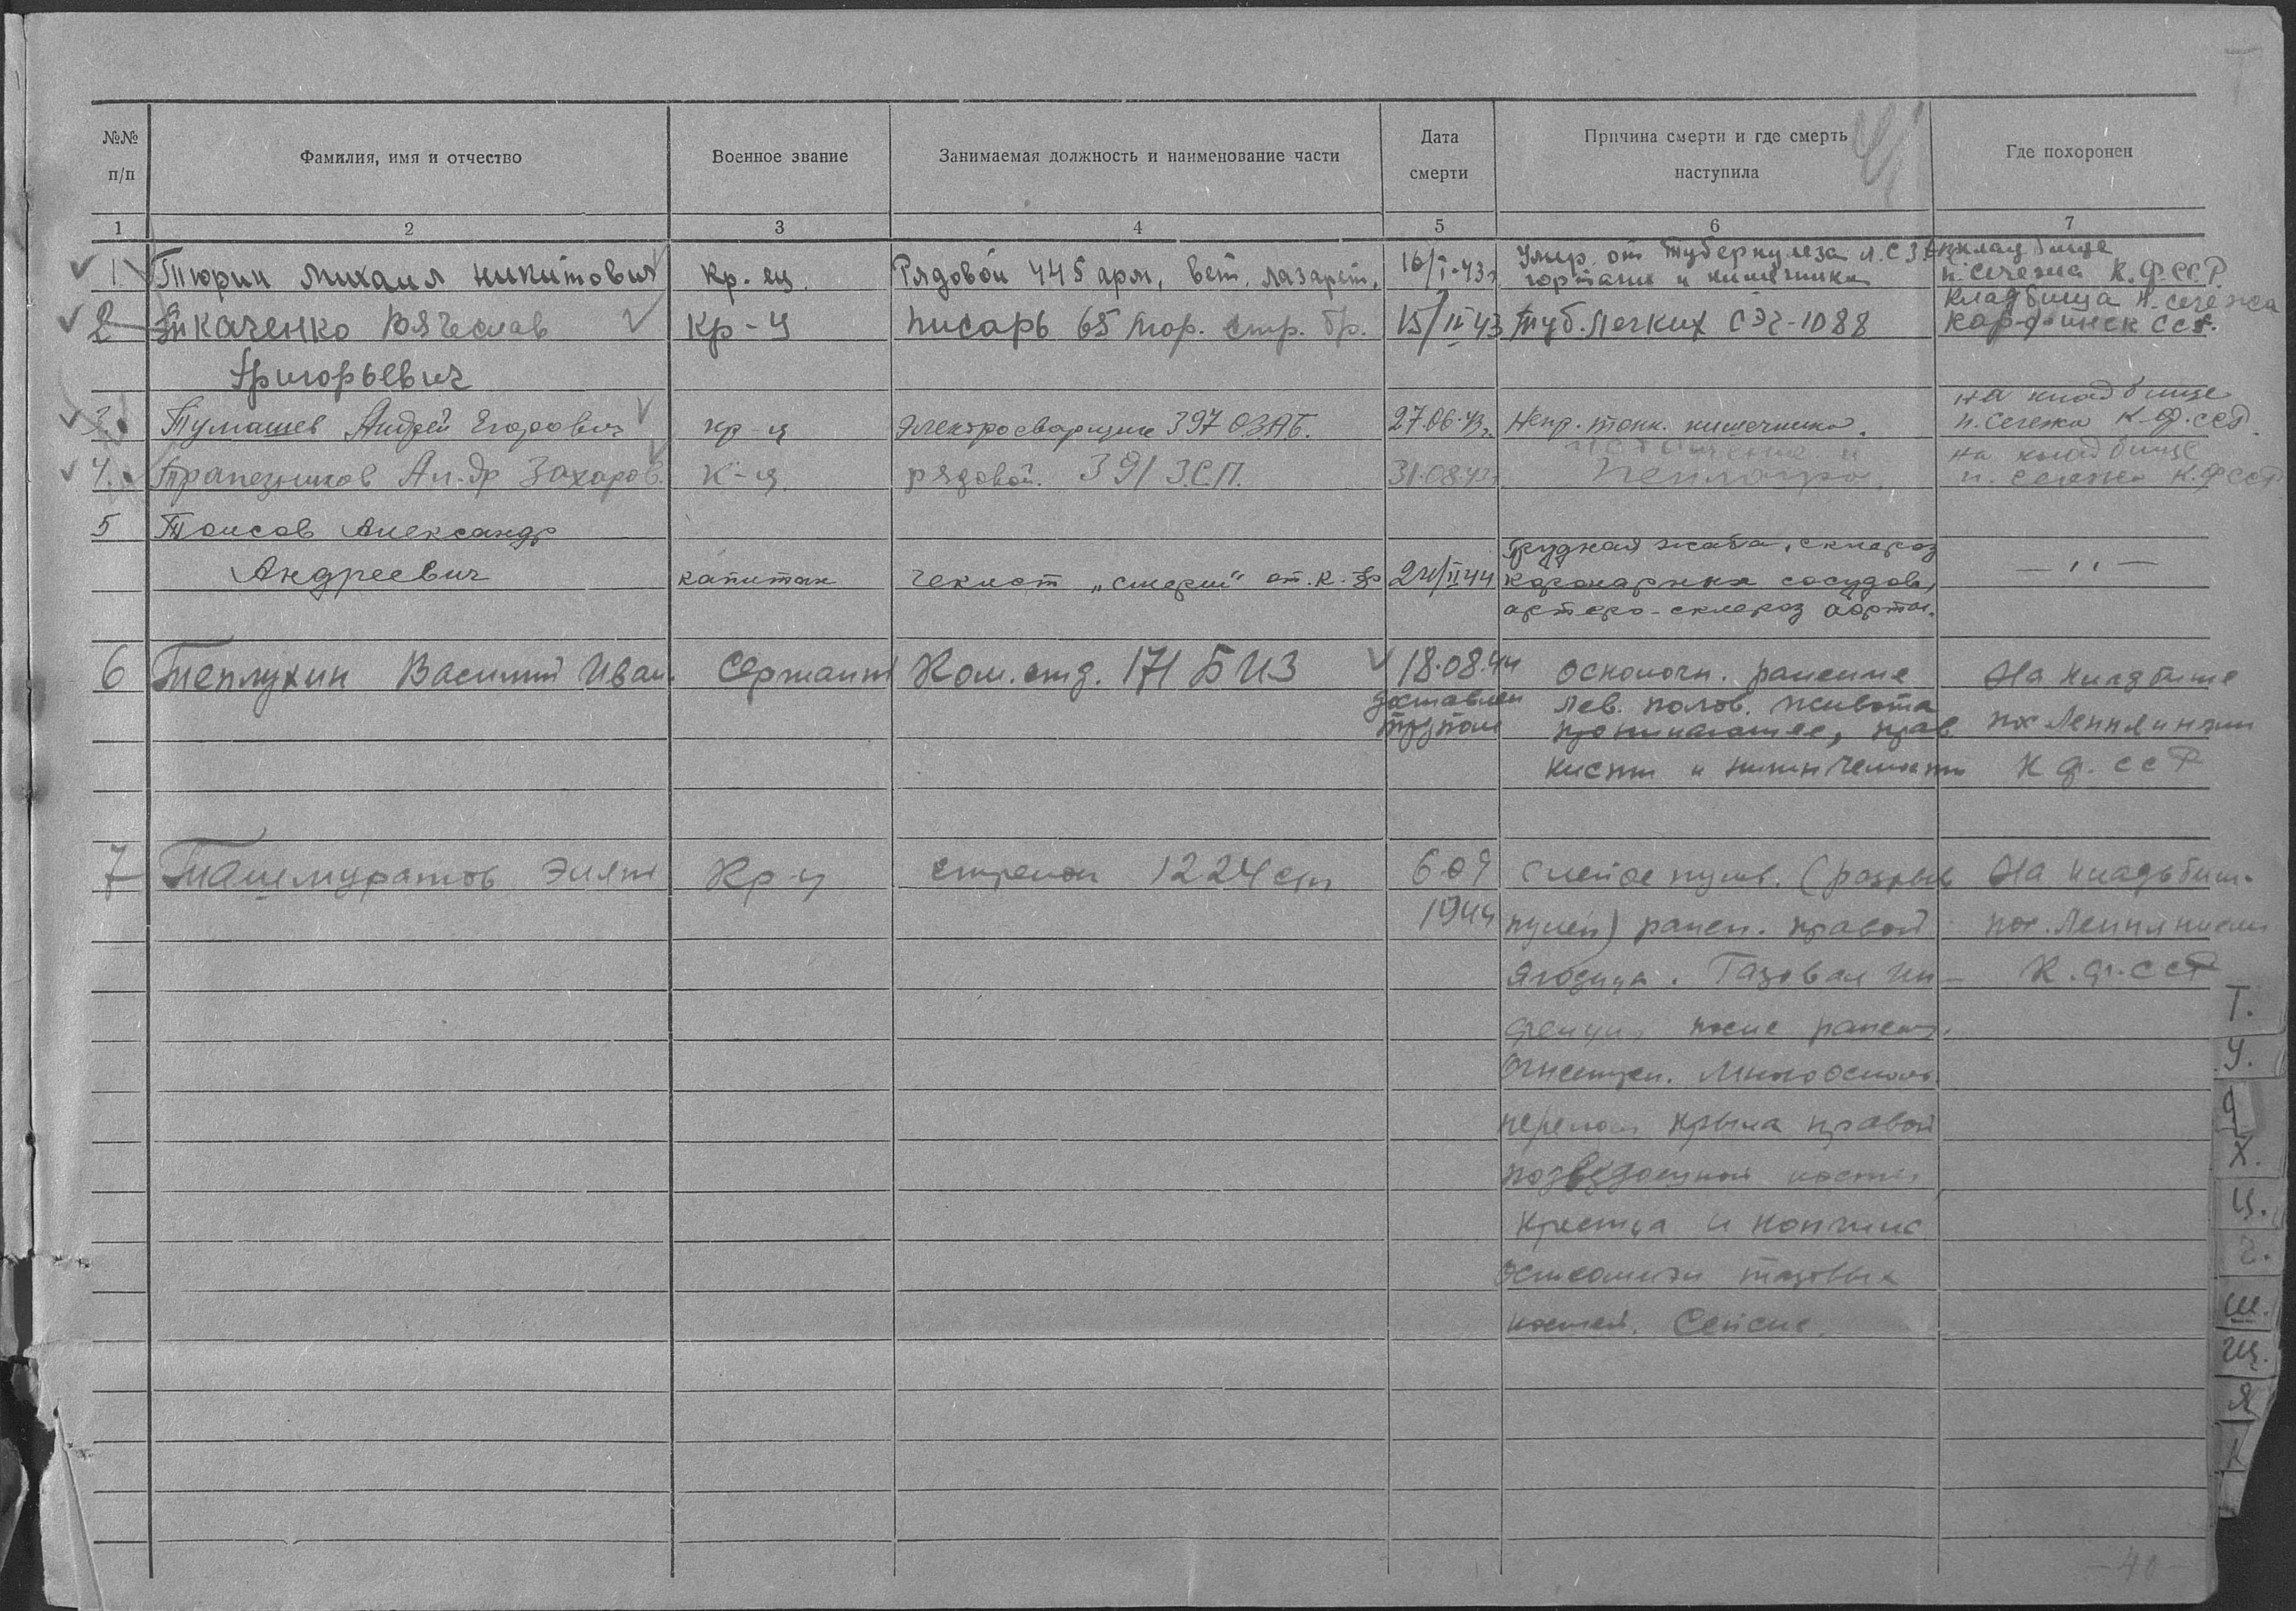 Т
№№ п/п
Фамилия, имя и отчество
Военное звание
Занимаемая должность и наименование части
Дата смерти
Причина смерти и где смерть
наступила
Где похоронен
1 2 3 4 5 6 7
1. Тюрин Михаил Никитович кр. ец. Рядовой 445 арм. вет. лазарет. 16/I-43г. Умер. от туберкулеза л. СЭГ кладбище
гортани и кишечника п. Сегежа К.Ф.ССР.
2 Ткаченко Вячеслав Кр-ц Писарь 65 мор. стр. бр. 15/II 43 туб. легких СЭГ-1088 Кладбища п. Сегежа
Кар-финск ССР.
Григорьевич
3. Тумашев Андрей Егорович кр-ц Электросварщик 397 ОЗАБ. 27.06.43г. Непр. тонк. кишечника. на кладбище
п. Сегежа К.Ф.ССР.
4. Трапезников Ал-др Захаров. К-ц рядовой. 391 З.С.П. 31.08.43г. Пеллагра. на кладбище
п. Сегежа К.Ф ССР
5 Томсов Александр
Андреевич капитан чекист „смерш" от. К. фр 24/II 44 Грудная жаба, склероз
коронарных сосудов,
артеро-склероз аорты.
— " —
6 Теплухин Василий Иван. Сержант Ком. отд. 171 БИЗ 18.08.44 Осколочн. ранение На кладбище
доставлен лев. полов. живота
трупом проникающее, прав пос Леппясилта
кисти и нижн челюсти К ф. ССР
7 Ташмуратов Эият Кр-ц стрелок 1224 сп 6.09 Слепое пулев. (разрыв На кладбищ.
1944 пулей) ранен. правой пос. Леппясилта
ягодицы. Газовая ин- К.ф.ССР
фекция после ранен.
Огнестрел. многооскол.
перелом крыла правой
подвздошной кости,
крестца и копчика
Остеомиэл тазовых
костей. Сепсис.
Т.
У.
Ф
Х.
Ц.
Г.
Ш.
Щ.
Я
К
- 40 -